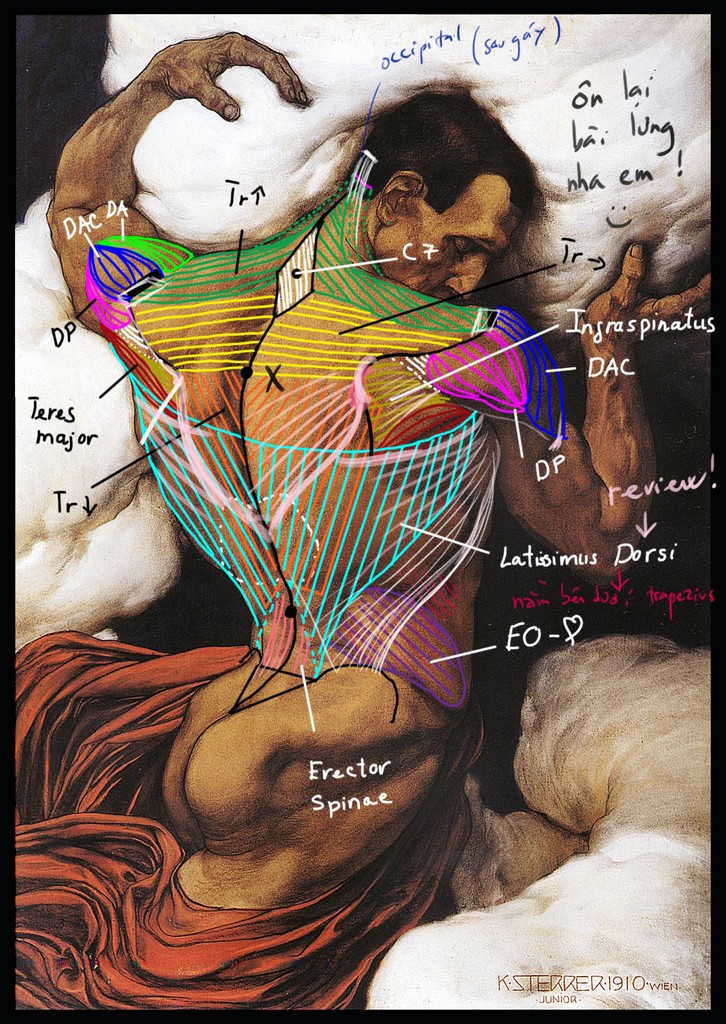 occipital (sau gáy)
ôn lại
bài lưng
nha em !
Tr↑
DAC DA
C7
Tr→
DP
Ingraspinatus
DAC
X
Teres
major
DP
Tr↓
review!
Latissimus Dorsi
nằm bên dưới trapezius
EO-♡
Erector
Spinae
K·STERRER·1910·WIEN
-JUNIOR-